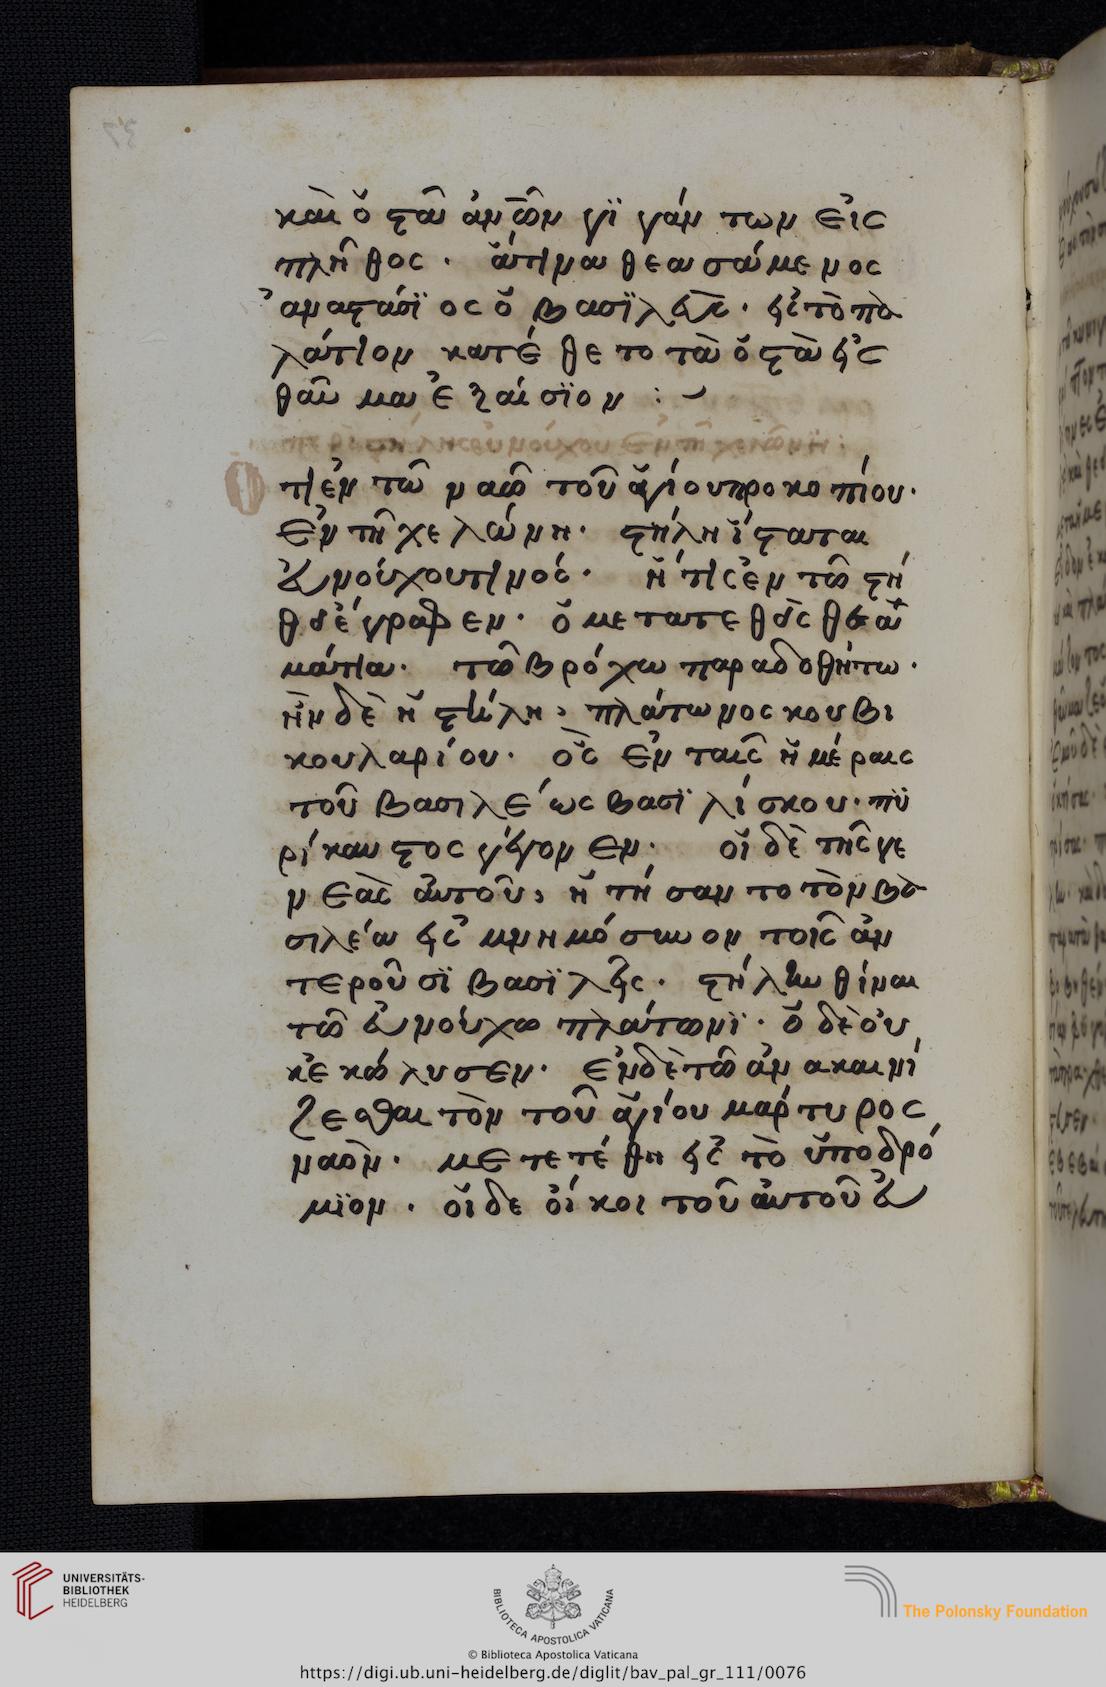 καὶ ὀστᾶ ἀνθρώπων γιγάντων εἰς
πλῆθος. ἅτινα θεασάμενος
ἀναστάσιος ὁ βασιλεὺς. εἰς τὸ πα
λάτιον κατέθετο τὰ ὀστᾶ εἰς
θαῦμα ἐξαίσιον :
στήλης εὐνούχου ἐν τῇ χελώνη :
Ὅτι ἐν τῶ ναῶ τοῦ ἁγίου προκοπίου.
ἐν τῆ χελώνη. στήλη ἵσταται
εὐνούχου τινός. ἥτις ἐν τῶ στή
θει ἔγραφεν. ὁ μετατεθεὶς θεαῖ
μάτια. τῶ βρόχω παραδοθήτω.
ἦν δὲ ἡ στήλη, πλάτωνος κουβι
κουλαρίου. ὃς ἐν ταῖς ἡμέραις
τοῦ βασιλέως βασιλίσκου. πυ
ρίκαυστος γέγονεν. οἱ δὲ τῆς γε
νεᾶς αὐτοῦ, ἠτήσαντο τὸν βα
σιλέα εἰς μνημόσυνον τοῖς ἀν
τεροῦσι βασιλεῖς. στήλην θῖναι
τῶ εὐνούχω πλάτωνι. ὁ δὲ οὐ
κ ἐκώλυσεν. ἐν δὲ τῶ ἀνακαινί
ζεσθαι τὸν τοῦ ἁγίου μάρτυρος
ναὸν. μετετέθη εἰς τὸ ὑποδρό
μιον. οἱ δε οἶκοι τοῦ αὐτοῦ εὐ
UNIVERSITÄTS-
BIBLIOTHEK
HEIDELBERG
BIBLIOTECA APOSTOLICA VATICANA
The Polonsky Foundation
© Biblioteca Apostolica Vaticana
https://digi.ub.uni-heidelberg.de/diglit/bav_pal_gr_111/0076